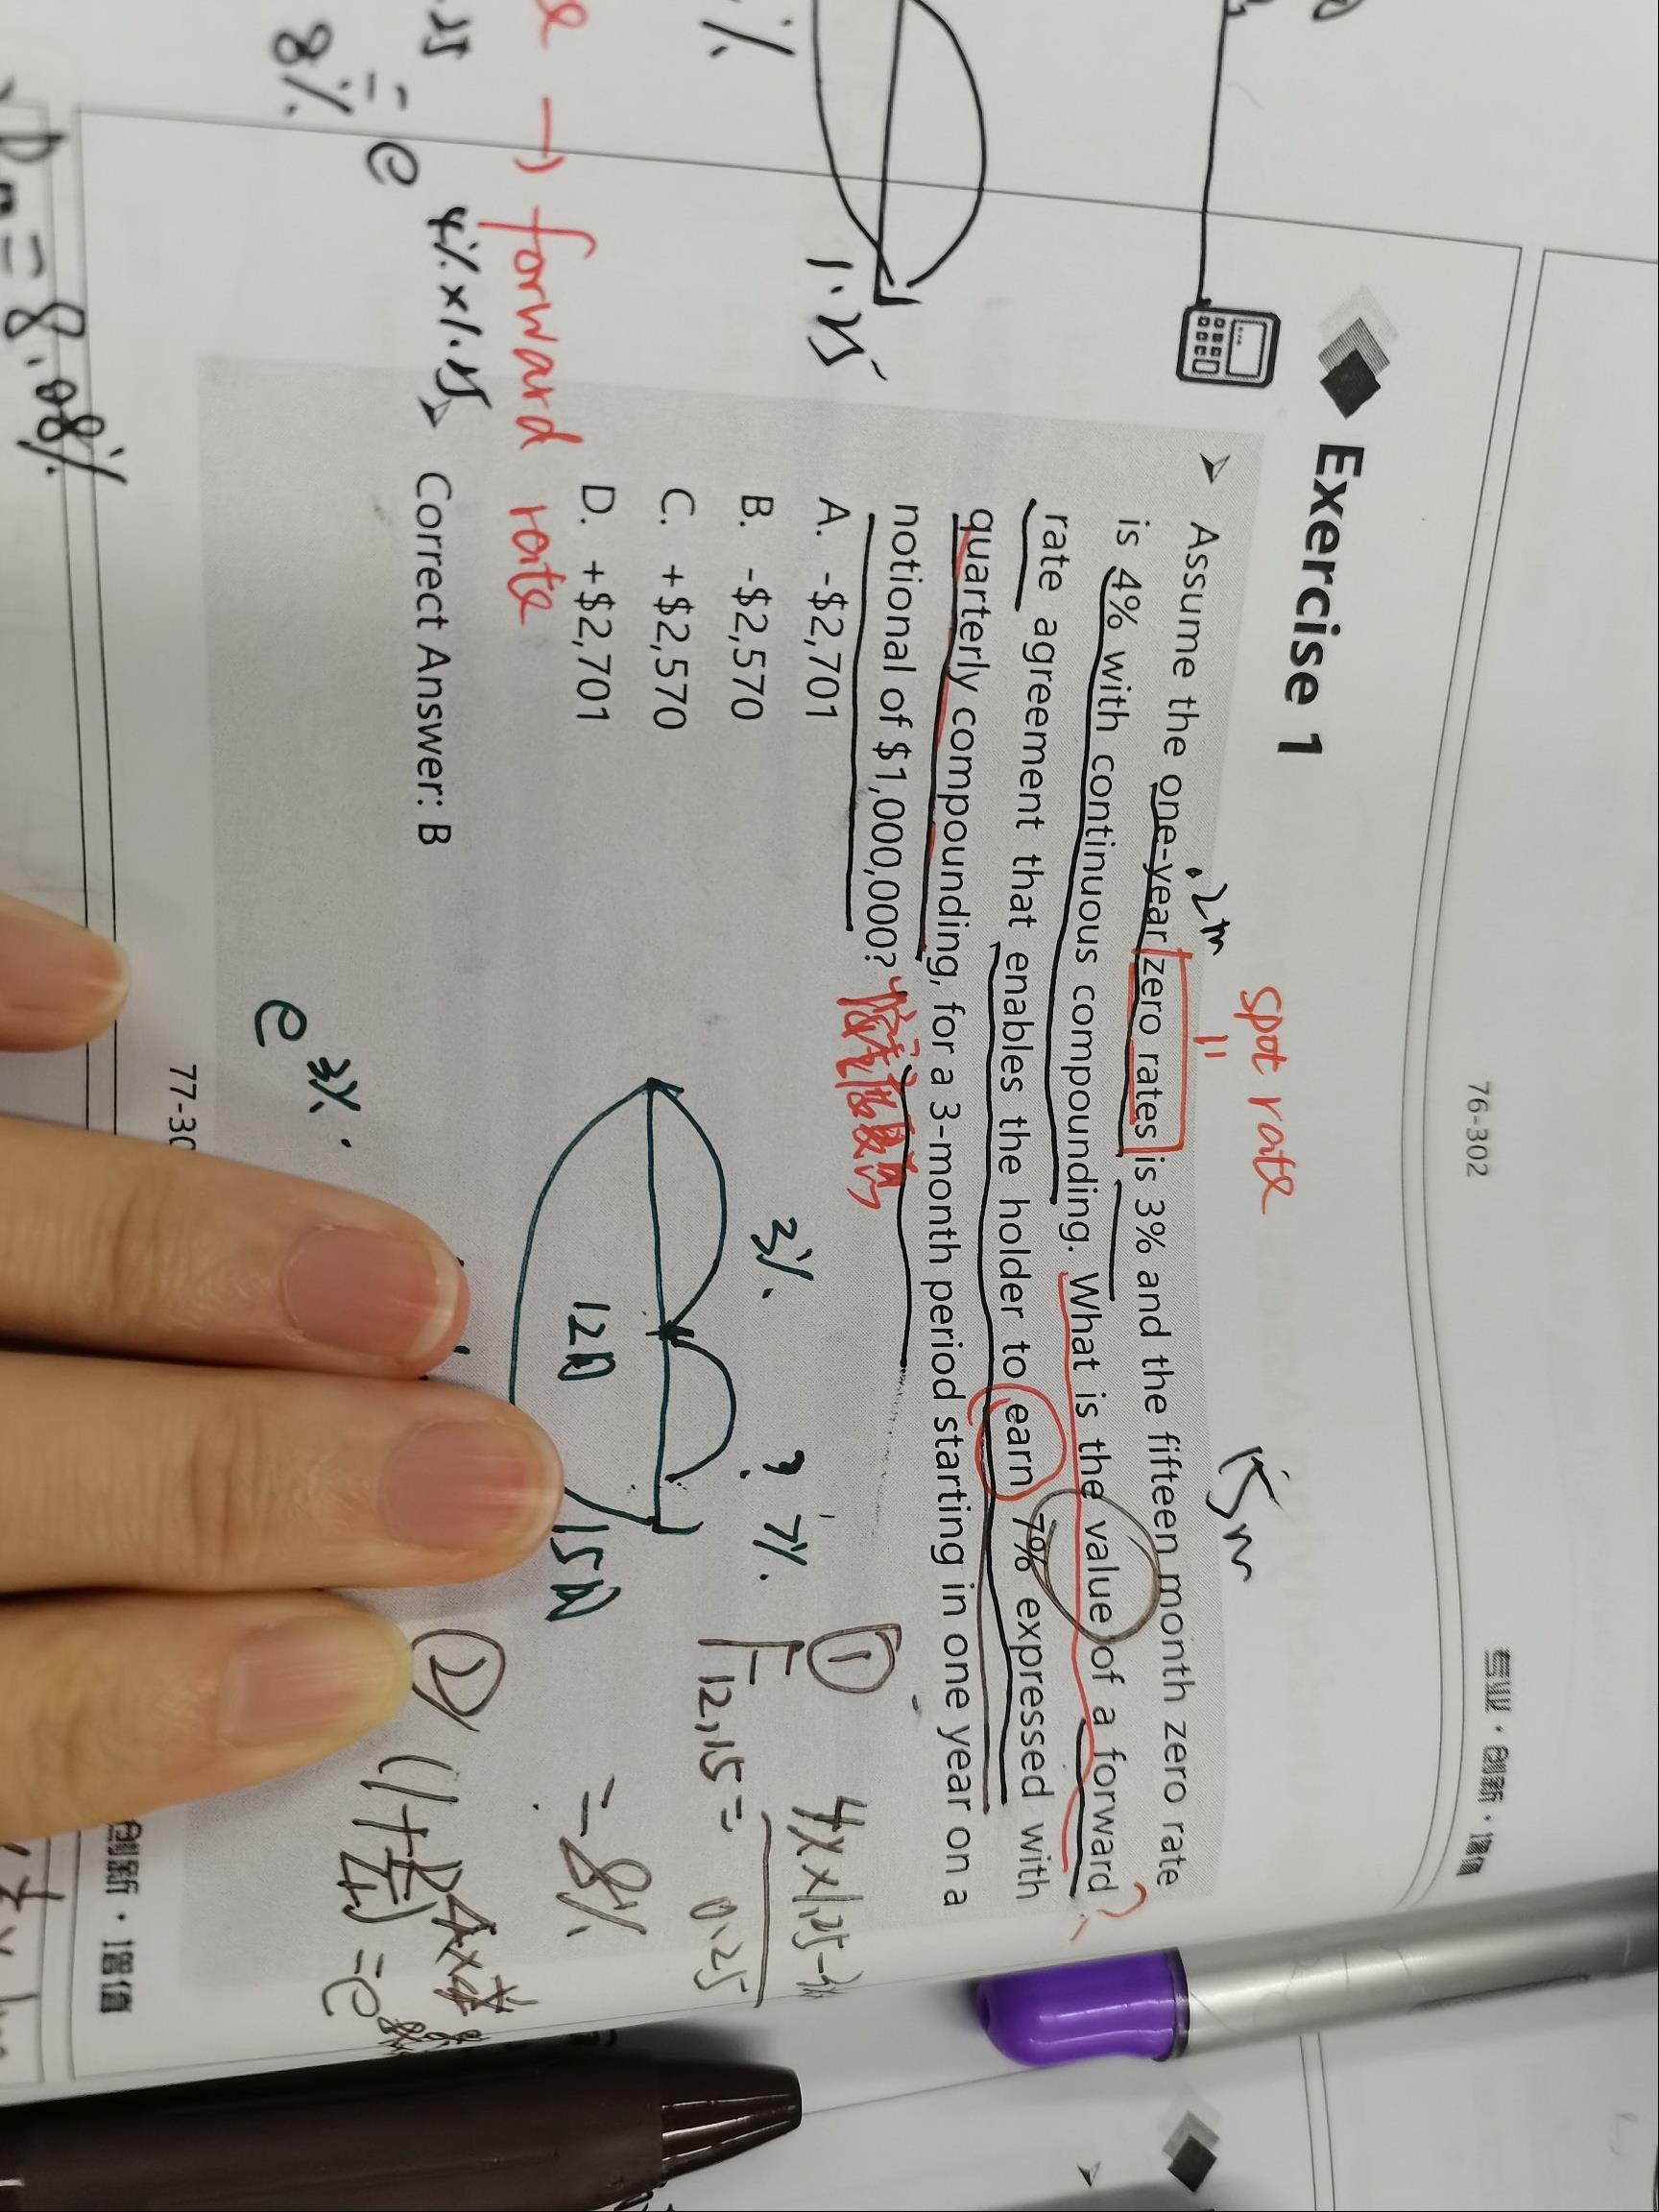 76-302
专业·创新·增值
Exercise 1
spot rate
=
12m
15m
➢ Assume the one-year zero rates is 3% and the fifteen month zero rate
is 4% with continuous compounding. What is the value of a forward
rate agreement that enables the holder to earn 7% expressed with
quarterly compounding, for a 3-month period starting in one year on a
notional of $1,000,000?
A. -$2,701
B. -$2,570
C. +$2,570
D. +$2,701
➢ Correct Answer: B
3%.
? 7%.
12月
15月
①
F12,15 =
0.25
= 8%
②
e 3%.
1.25
→ forward rate
= e 4%×1.25
8%
= 8.08%
77-30
创新·增值